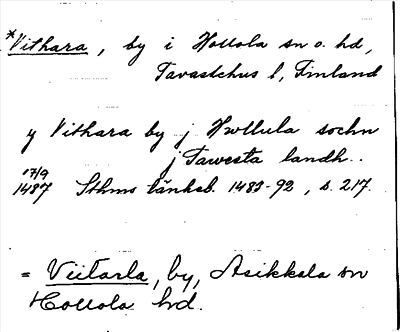 *Vithara, by i Hollola sn o. hd,
Tavastehus l, Finland
y Vithara by j Hwllula sochn
j Tawesta landh..
17/9
1487 Sthms tänkeb. 1483-92, s. 217.
= Viitarla, by, Asikkala sn
Hollola hd.